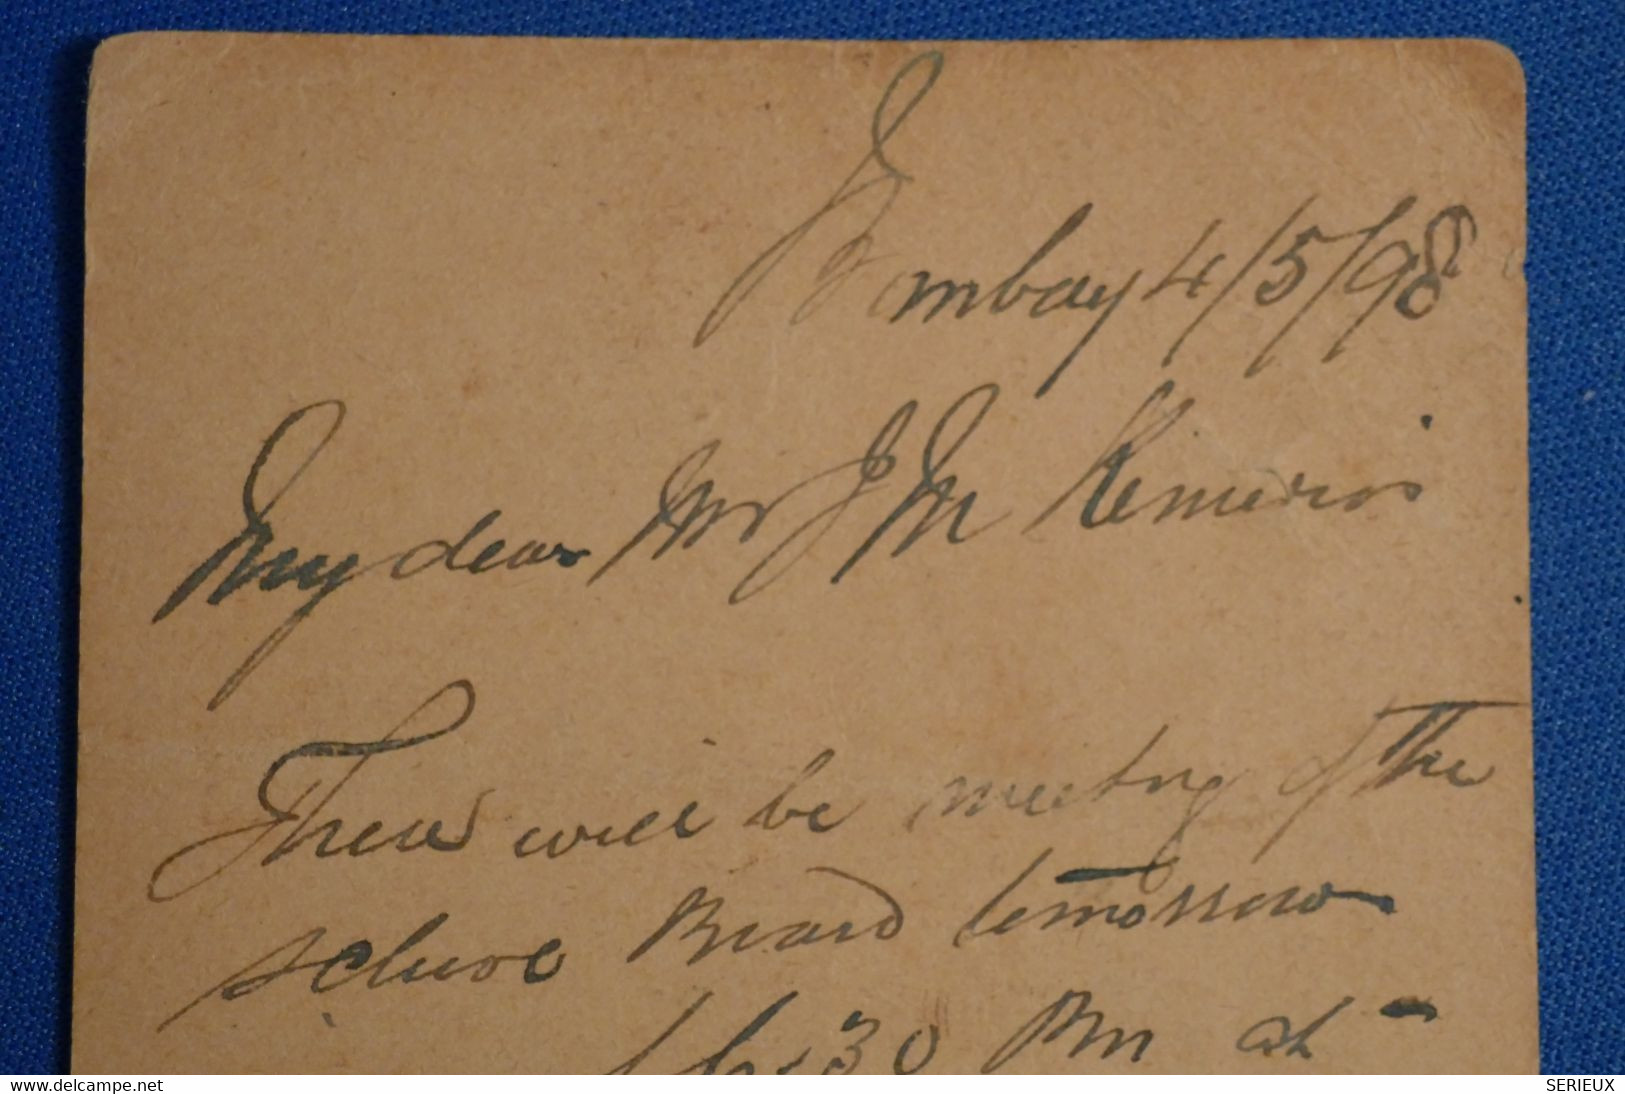 Bombay 4/5/98
My dear Mr J M
There will be meeting of the
Board tomorrow
6.30 Pm at
delcampe.net
SERIEUX